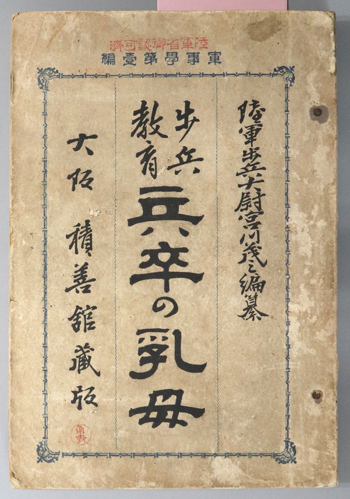 陸軍省御認可濟
軍事學第壹編
陸軍步兵大尉宮川茂之編纂
步兵
教育
兵卒の乳母
大阪 積善舘藏版